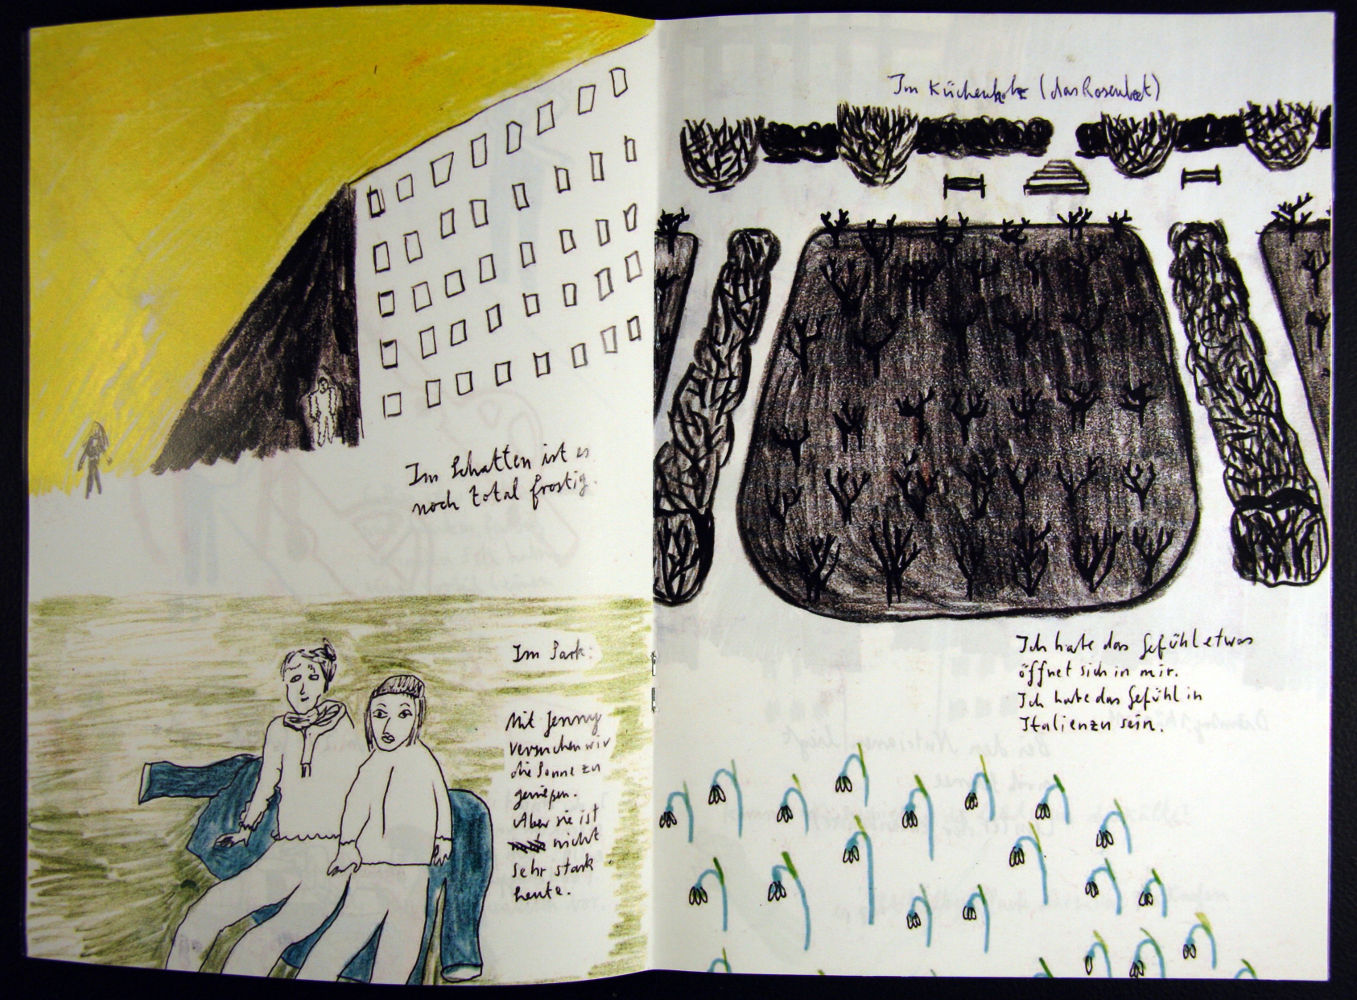 Im Schatten ist es
noch total frostig.
Im Park:
Mit Jenny
versuchen wir
die Sonne zu
genießen.
Aber sie ist
nicht
sehr stark
heute.
Im (das Rosenbeet)
Ich habe das Gefühl etwas
öffnet sich in mir.
Ich habe das Gefühl in
Italien zu sein.